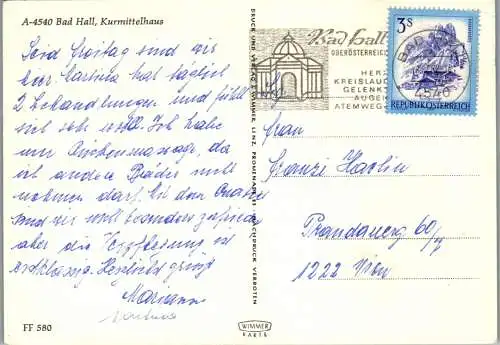 A-4540 Bad Hall, Kurmittelhaus
Seid Freitag sind wir
hier Martina hat täglich
2 Behandlungen und fühlt
sich sehr wohl. Ich habe
nur Rückenmassage, da
ich andere Bäder nicht
nehmen darf. Mit dem Quartier
sind wir nicht besonders zufrieden
aber die Verpflegung ist
erstklassig. Herzlichst grüßt
Marianne
FF 580
DRUCK UND VERLAG WIMMER, LINZ, PROMENADE 23 NACHDRUCK VERBOTEN
WIMMER
KARTE
Bad Hall
OBERÖSTERREICH
HERZ
KREISLAUF
GELENK
AUGEN
ATEMWEGE
3S
REPUBLIK ÖSTERREICH
BAD HALL
4540
Frau
Franzi
Prandauerg 60/
1222 Wien